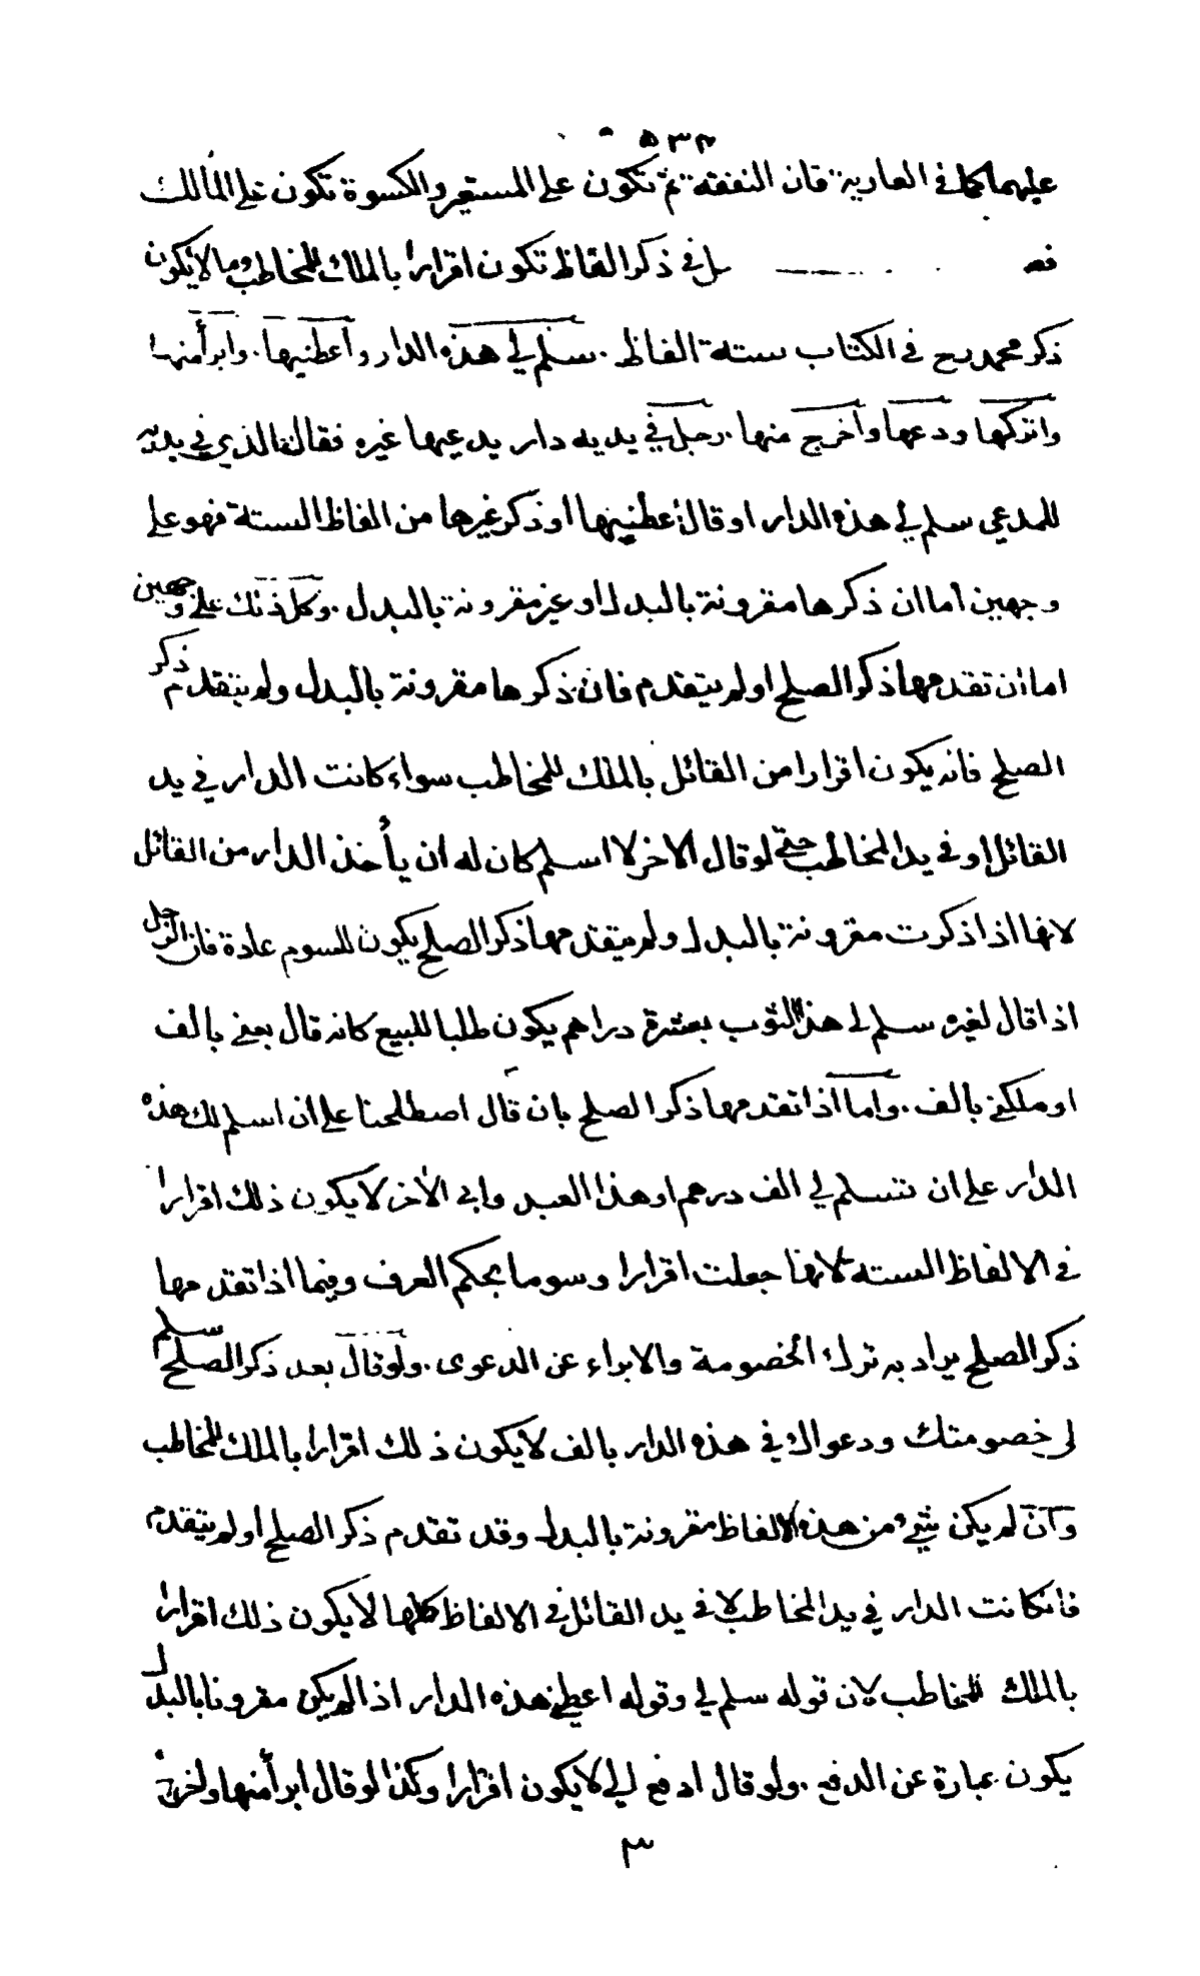 ٥٣٢
عليهما كما في العارية فان النفقة ثم تكون على المستعير والكسوة تكون على المالك
فصل في ذكر الفاظ تكون اقرارا بالملك للمخاطب وما لا يكون
ذكر محمد رح في الكتاب ستة الفاظ . سلم لي هذه الدار واعطنيها . وابرأ منها
واتركها ودعها واخرج منها . رجل في يديه دار يدعيها غيره فقال الذي في يديه
للمدعي سلم لي هذه الدار او قال اعطنيها او ذكر غيرها من الفاظ الستة فهو على
وجهين اما ان ذكرها مقرونة بالبدل او غير مقرونة بالبدل . وكل ذلك على وجهين
اما ان تقدمها ذكر الصلح او لم يتقدم فان ذكرها مقرونة بالبدل ولم يتقدم ذكر
الصلح فانه يكون اقرارا من القائل بالملك للمخاطب سواء كانت الدار في يد
القائل او في يد المخاطب حتى لو قال الاخر لا اسلم كان له ان يأخذ الدار من القائل
لانها اذا ذكرت مقرونة بالبدل ولم يتقدمها ذكر الصلح يكون للسوم عادة فان الرجل
اذا قال لغيره سلم لي هذا الثوب بعشرة دراهم يكون طلبا للبيع كانه قال بعني بالف
او ملكني بالف . واما اذا تقدمها ذكر الصلح بان قال اصطلحنا على ان اسلم لك هذه
الدار على ان تسلم لي الف درهم او هذا العبد وابى الأخر لا يكون ذلك اقرارا
في الالفاظ الستة لانها جعلت اقرارا وسوما بحكم العرف وفيما اذا تقدمها
ذكر الصلح يراد به ترك الخصومة والابراء عن الدعوى . ولو قال بعد ذكر الصلح سلم
لي خصومتك ودعواك في هذه الدار بالف لا يكون ذلك اقرارا بالملك للمخاطب
وان لم يكن شيئ من هذه الالفاظ مقرونة بالبدل وقد تقدم ذكر الصلح او لم يتقدم
فان كانت الدار في يد المخاطب لا في يد القائل في الالفاظ كلها لا يكون ذلك اقرارا
بالملك للمخاطب لان قوله سلم لي وقوله اعطني هذه الدار اذا لم يكن مقرونا بالبدل
يكون عبارة عن الدفع . ولو قال ادفع لي لا يكون اقرارا وكذا لو قال ابرأ منها
٣